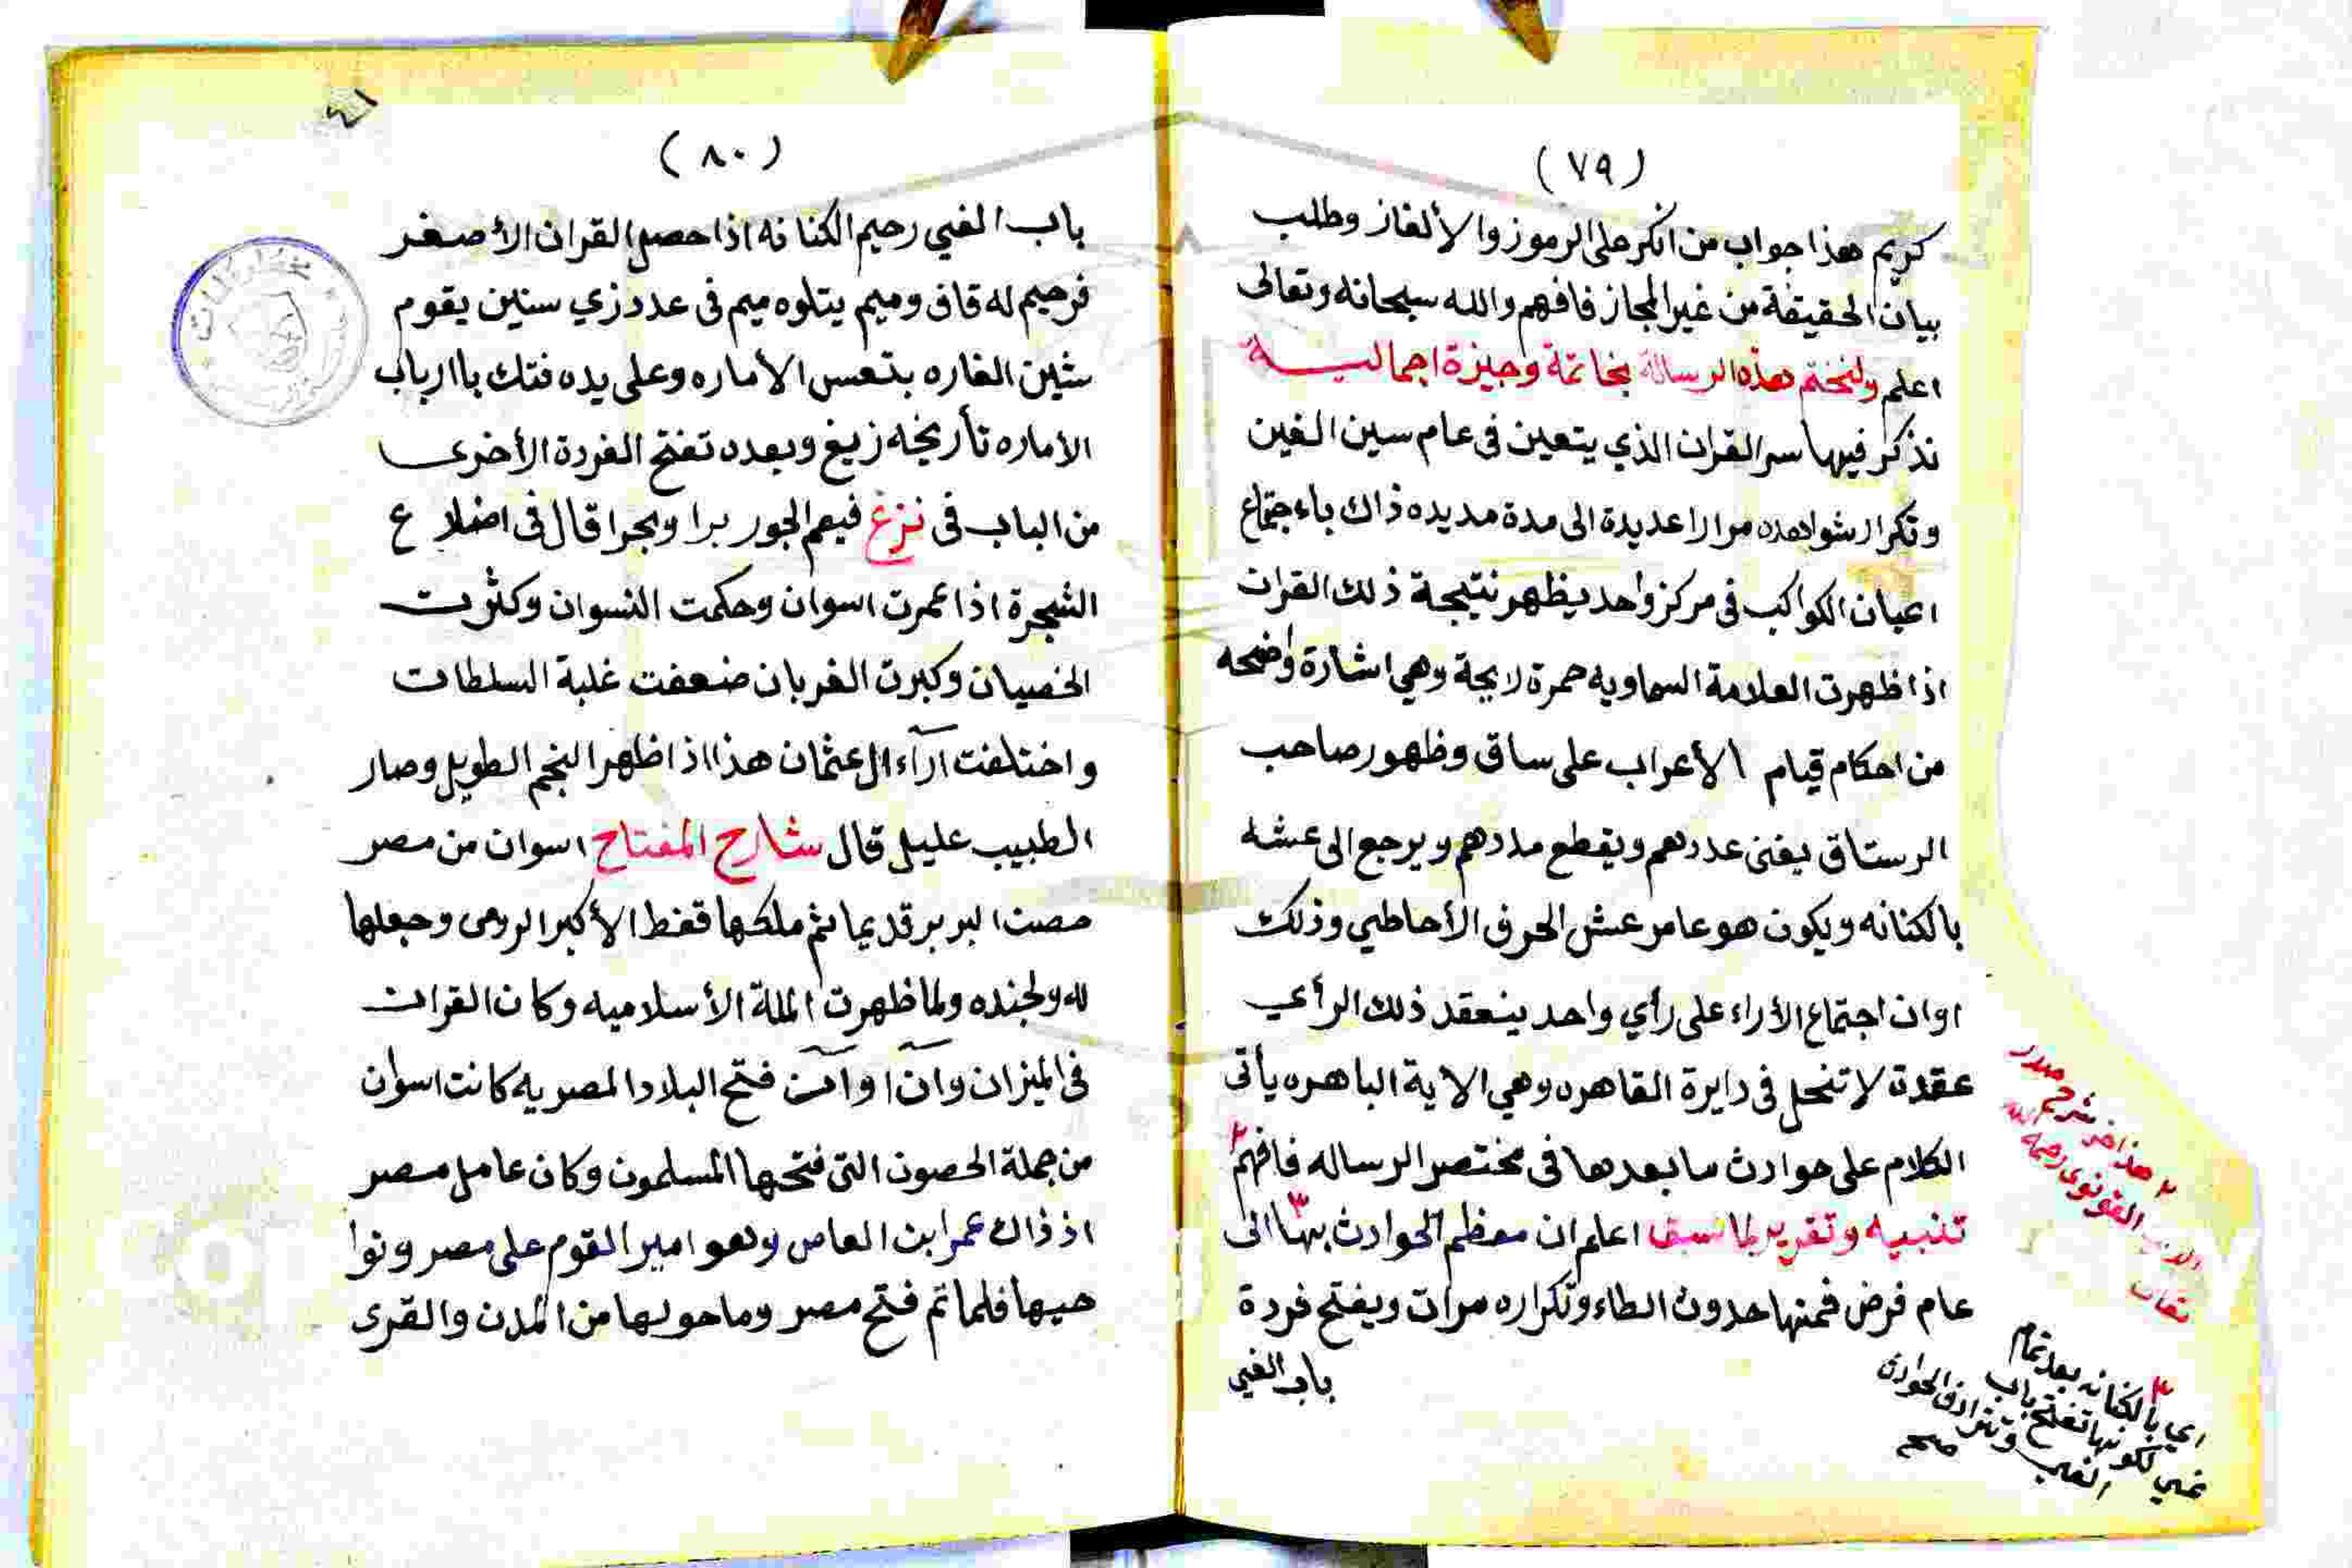 (٧٩)
كريم هذا جواب من انكر على الرموز والألغاز وطلب
بيان الحقيقة من غير المجاز فافهم والله سبحانه وتعالى
اعلم ولنختم هذه الرسالة بخاتمة وجيزة اجمالية
نذكر فيها سر القران الذي يتعين فى عام سين الغين
وتكرار شواهده مرارا عديدة الى مدة مديده ذاك باءجتماع
اعيان الكواكب فى مركز واحد يظهر نتيجة ذلك القران
اذا ظهرت العلامة السماويه حمرة لايحة وهي اشارة واضحه
من احكام قيام الأعراب على ساق وظهور صاحب
الرستاق يفنى عددهم ويقطع مددهم ويرجع الى عشه
بالكنانه ويكون هو عامر عش الحرف الأحاطي وذلك
اوان اجتماع الأراء على رأي واحد ينعقد ذلك الرأي
عقدة لا تنحل فى دايرة القاهره وهي الاية الباهره يأتى
الكلام على حوادث ما بعدها فى مختصر الرساله فافهم ٢
تنبيه وتقرير لما سبق اعلم ان معظم الحوادث بها ٣ الى
عام فرض فمنها حدوث الطاء وتكراره مرات ويفتح فردة
باب الغي
٢ هذا اخر شرح صدر
الدين القونوى رحمه الله
تعالى
٣
اي بالكنانه بعد تمام
غي لكونها تفتح باب
الغي وتترادف الحوادث
صح
(٨٠)
باب الغي رحيم الكنانه اذا حصل القران الأصغر
فرحيم له قاف وميم يتلوه ميم فى عدد زي سنين يقوم
شين الغاره بتعس الأماره وعلى يده فتك باارباب
الأماره تأريخه زيغ وبعده تفتح الفردة الأخرى
من الباب فى نزغ فيعم الجور برا وبحرا قال فى اضلاع
الشجرة اذا عمرت اسوان وحكمت النسوان وكثرت
الخصيان وكبرت الغربان ضعفت غلبة السلطات
واختلفت آرآء ال عثمان هذا اذا ظهر النجم الطويل وصار
الطبيب عليل قال شارح المفتاح اسوان من مصر
حصن البربر قديما ثم ملكها قفط الأكبر الرومى وجعلها
له ولجنده ولما ظهرت الملة الأسلاميه وكان القران
فى الميزان وآن اوآن فتح البلاد المصريه كانت اسوان
من جملة الحصون التى فتحها المسلمون وكان عامل مصر
اذ ذاك عمرا بن العاص وهو امير القوم على مصر ونوا
حيها فلما تم فتح مصر وما حولها من المدن والقرى